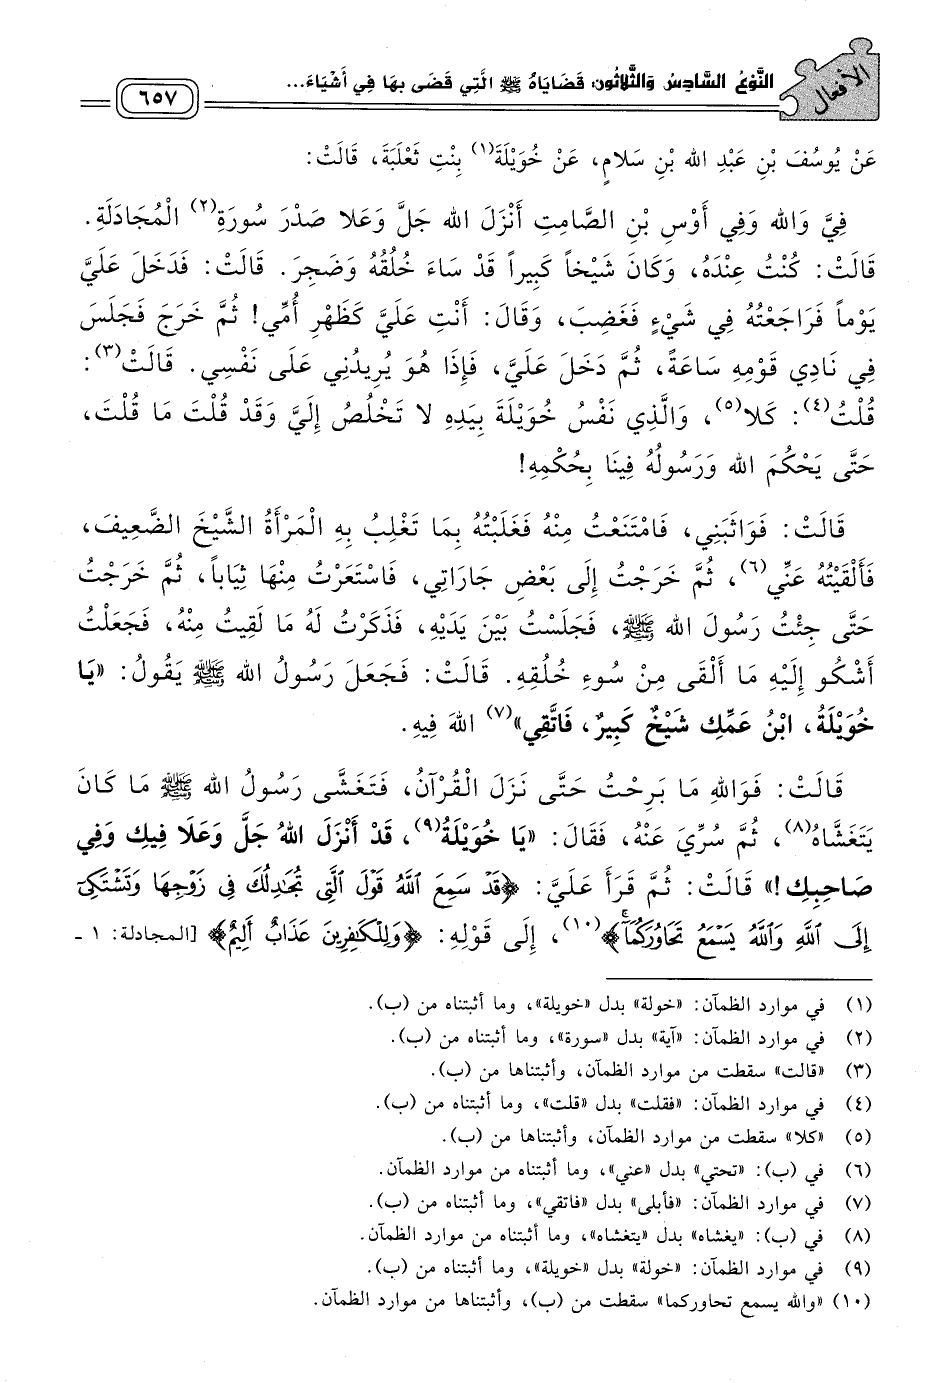 الأفعال
النَّوْعُ السَّادِسُ وَالثَّلَاثُونَ: قَضَايَاهُ ﷺ الَّتِي قَضَى بِهَا فِي أَشْيَاءَ...
٦٥٧
عَنْ يُوسُفَ بْنِ عَبْدِ الله بْنِ سَلَامٍ، عَنْ خُوَيْلَةَ(١) بِنْتِ ثَعْلَبَةَ، قَالَتْ:
فِيَّ وَالله وَفِي أَوْسِ بْنِ الصَّامِتِ أَنْزَلَ الله جَلَّ وَعَلا صَدْرَ سُورَةِ(٢) الْمُجَادَلَةِ.
قَالَتْ: كُنْتُ عِنْدَهُ، وَكَانَ شَيْخاً كَبِيراً قَدْ سَاءَ خُلُقُهُ وَضَجِرَ. قَالَتْ: فَدَخَلَ عَلَيَّ
يَوْماً فَرَاجَعْتُهُ فِي شَيْءٍ فَغَضِبَ، وَقَالَ: أَنْتِ عَلَيَّ كَظَهْرِ أُمِّي! ثُمَّ خَرَجَ فَجَلَسَ
فِي نَادِي قَوْمِهِ سَاعَةً، ثُمَّ دَخَلَ عَلَيَّ، فَإِذَا هُوَ يُرِيدُنِي عَلَى نَفْسِي. قَالَتْ(٣):
قُلْتُ(٤): كَلا(٥)، وَالَّذِي نَفْسُ خُوَيْلَةَ بِيَدِهِ لا تَخْلُصُ إِلَيَّ وَقَدْ قُلْتَ مَا قُلْتَ،
حَتَّى يَحْكُمَ الله وَرَسُولُهُ فِينَا بِحُكْمِهِ!
قَالَتْ: فَوَاثَبَنِي، فَامْتَنَعْتُ مِنْهُ فَغَلَبْتُهُ بِمَا تَغْلِبُ بِهِ الْمَرْأَةُ الشَّيْخَ الضَّعِيفَ،
فَأَلْقَيْتُهُ عَنِّي(٦)، ثُمَّ خَرَجْتُ إِلَى بَعْضِ جَارَاتِي، فَاسْتَعَرْتُ مِنْهَا ثِيَاباً، ثُمَّ خَرَجْتُ
حَتَّى جِئْتُ رَسُولَ الله ﷺ، فَجَلَسْتُ بَيْنَ يَدَيْهِ، فَذَكَرْتُ لَهُ مَا لَقِيتُ مِنْهُ، فَجَعَلْتُ
أَشْكُو إِلَيْهِ مَا أَلْقَى مِنْ سُوءِ خُلُقِهِ. قَالَتْ: فَجَعَلَ رَسُولُ الله ﷺ يَقُولُ: «يَا
خُوَيْلَةُ، ابْنُ عَمِّكِ شَيْخٌ كَبِيرٌ، فَاتَّقِي»(٧) اللهَ فِيهِ.
قَالَتْ: فَوَاللهِ مَا بَرِحْتُ حَتَّى نَزَلَ الْقُرْآنُ، فَتَغَشَّى رَسُولُ الله ﷺ مَا كَانَ
يَتَغَشَّاهُ(٨)، ثُمَّ سُرِّيَ عَنْهُ، فَقَالَ: «يَا خُوَيْلَةُ(٩)، قَدْ أَنْزَلَ اللهُ جَلَّ وَعَلَا فِيكِ وَفِي
صَاحِبِكِ!» قَالَتْ: ثُمَّ قَرَأَ عَلَيَّ: ﴿قَدْ سَمِعَ ٱللَّهُ قَوْلَ ٱلَّتِي تُجَٰدِلُكَ فِي زَوْجِهَا وَتَشْتَكِىٓ
إِلَى ٱللَّهِ وَٱللَّهُ يَسْمَعُ تَحَاوُرَكُمَآ﴾(١٠)، إِلَى قَوْلِهِ: ﴿وَلِلْكَٰفِرِينَ عَذَابٌ أَلِيمٌ﴾ [المجادلة: ١ -
(١) في موارد الظمآن: «خولة» بدل «خويلة»، وما أثبتناه من (ب).
(٢) في موارد الظمآن: «آية» بدل «سورة»، وما أثبتناه من (ب).
(٣) «قالت» سقطت من موارد الظمآن، وأثبتناها من (ب).
(٤) في موارد الظمآن: «فقلت» بدل «قلت»، وما أثبتناه من (ب).
(٥) «كلا» سقطت من موارد الظمآن، وأثبتناها من (ب).
(٦) في (ب): «تحتي» بدل «عني»، وما أثبتناه من موارد الظمآن.
(٧) في موارد الظمآن: «فأبلى» بدل «فاتقي»، وما أثبتناه من (ب).
(٨) في (ب): «يغشاه» بدل «يتغشاه»، وما أثبتناه من موارد الظمآن.
(٩) في موارد الظمآن: «خولة» بدل «خويلة»، وما أثبتناه من (ب).
(١٠) «والله يسمع تحاوركما» سقطت من (ب)، وأثبتناها من موارد الظمآن.